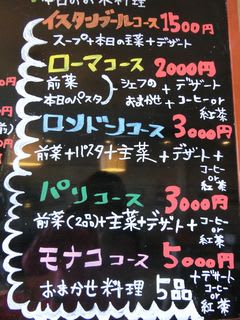 イスタンブールコース 1500円
スープ+本日の主菜+デザート
ローマコース 2000円
前菜
本日のパスタ
シェフの
おまかせ
+デザート
+コーヒーor
紅茶
ロンドンコース 3000円
前菜+パスタ+主菜+デザート+
コーヒー
or
紅茶
パリコース 3000円
前菜(2品)+主菜+デザート+
コーヒー
or
紅茶
モナココース 5000円
おまかせ料理 5品
+デザート
コーヒー
or
紅茶